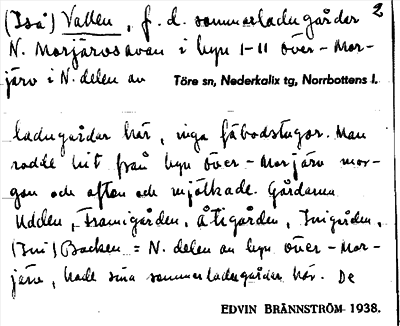 2
(Iså) Vallen, f. d. sommarladugårdar
N. Morjärvs avan i byn 1-11 över-Mor-
järv i N. delen av Töre sn, Nederkalix tg, Norrbottens l.
ladugårdar här, inga fäbodstugor. Man
rodde hit från byn över-Morjärv mor-
gon och afton och mjölkade. Gårdarna
Udden, Framigården, Åtigården, Inigården,
(Ini) Backen = N. delen av byn över-Mor-
järv, hade sina sommarladugårdar här. De
EDVIN BRÄNNSTRÖM 1938.